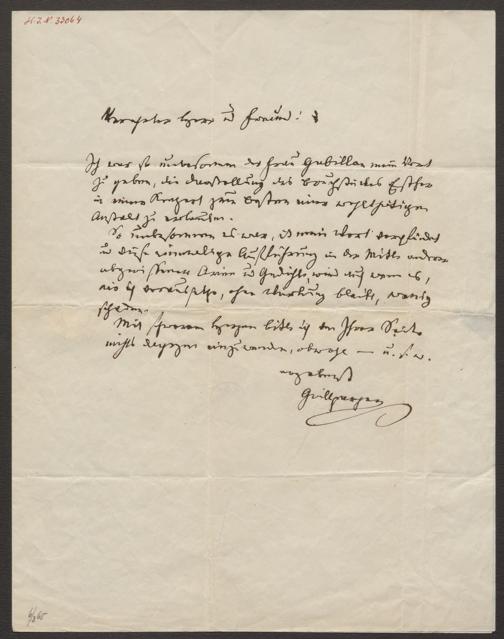 H.I.N. 33064
Verehrter Herr und Freund!
Ich war so unbesonnen der Frau Gabillon mein Wort
zu geben, die Darstellung des Bruchstückes Esther
in einem Konzert zum Besten einer wohlthätigen
Anstalt zu erlauben.
So unbesonnen es war, ist mein Wort verpfändet
und diese einmalige Aufführung in der Mitte anderer
abgerissener Arien und Gedichte, wird auch wenn es,
wie ich voraussetze, ohne Wirkung bleibt, wenig
schaden.
Mit schwerem Herzen bitte ich von Ihrer Seite
nichts dagegen einzuwenden, obwohl — u. s. w.
ergebenst
Grillparzer